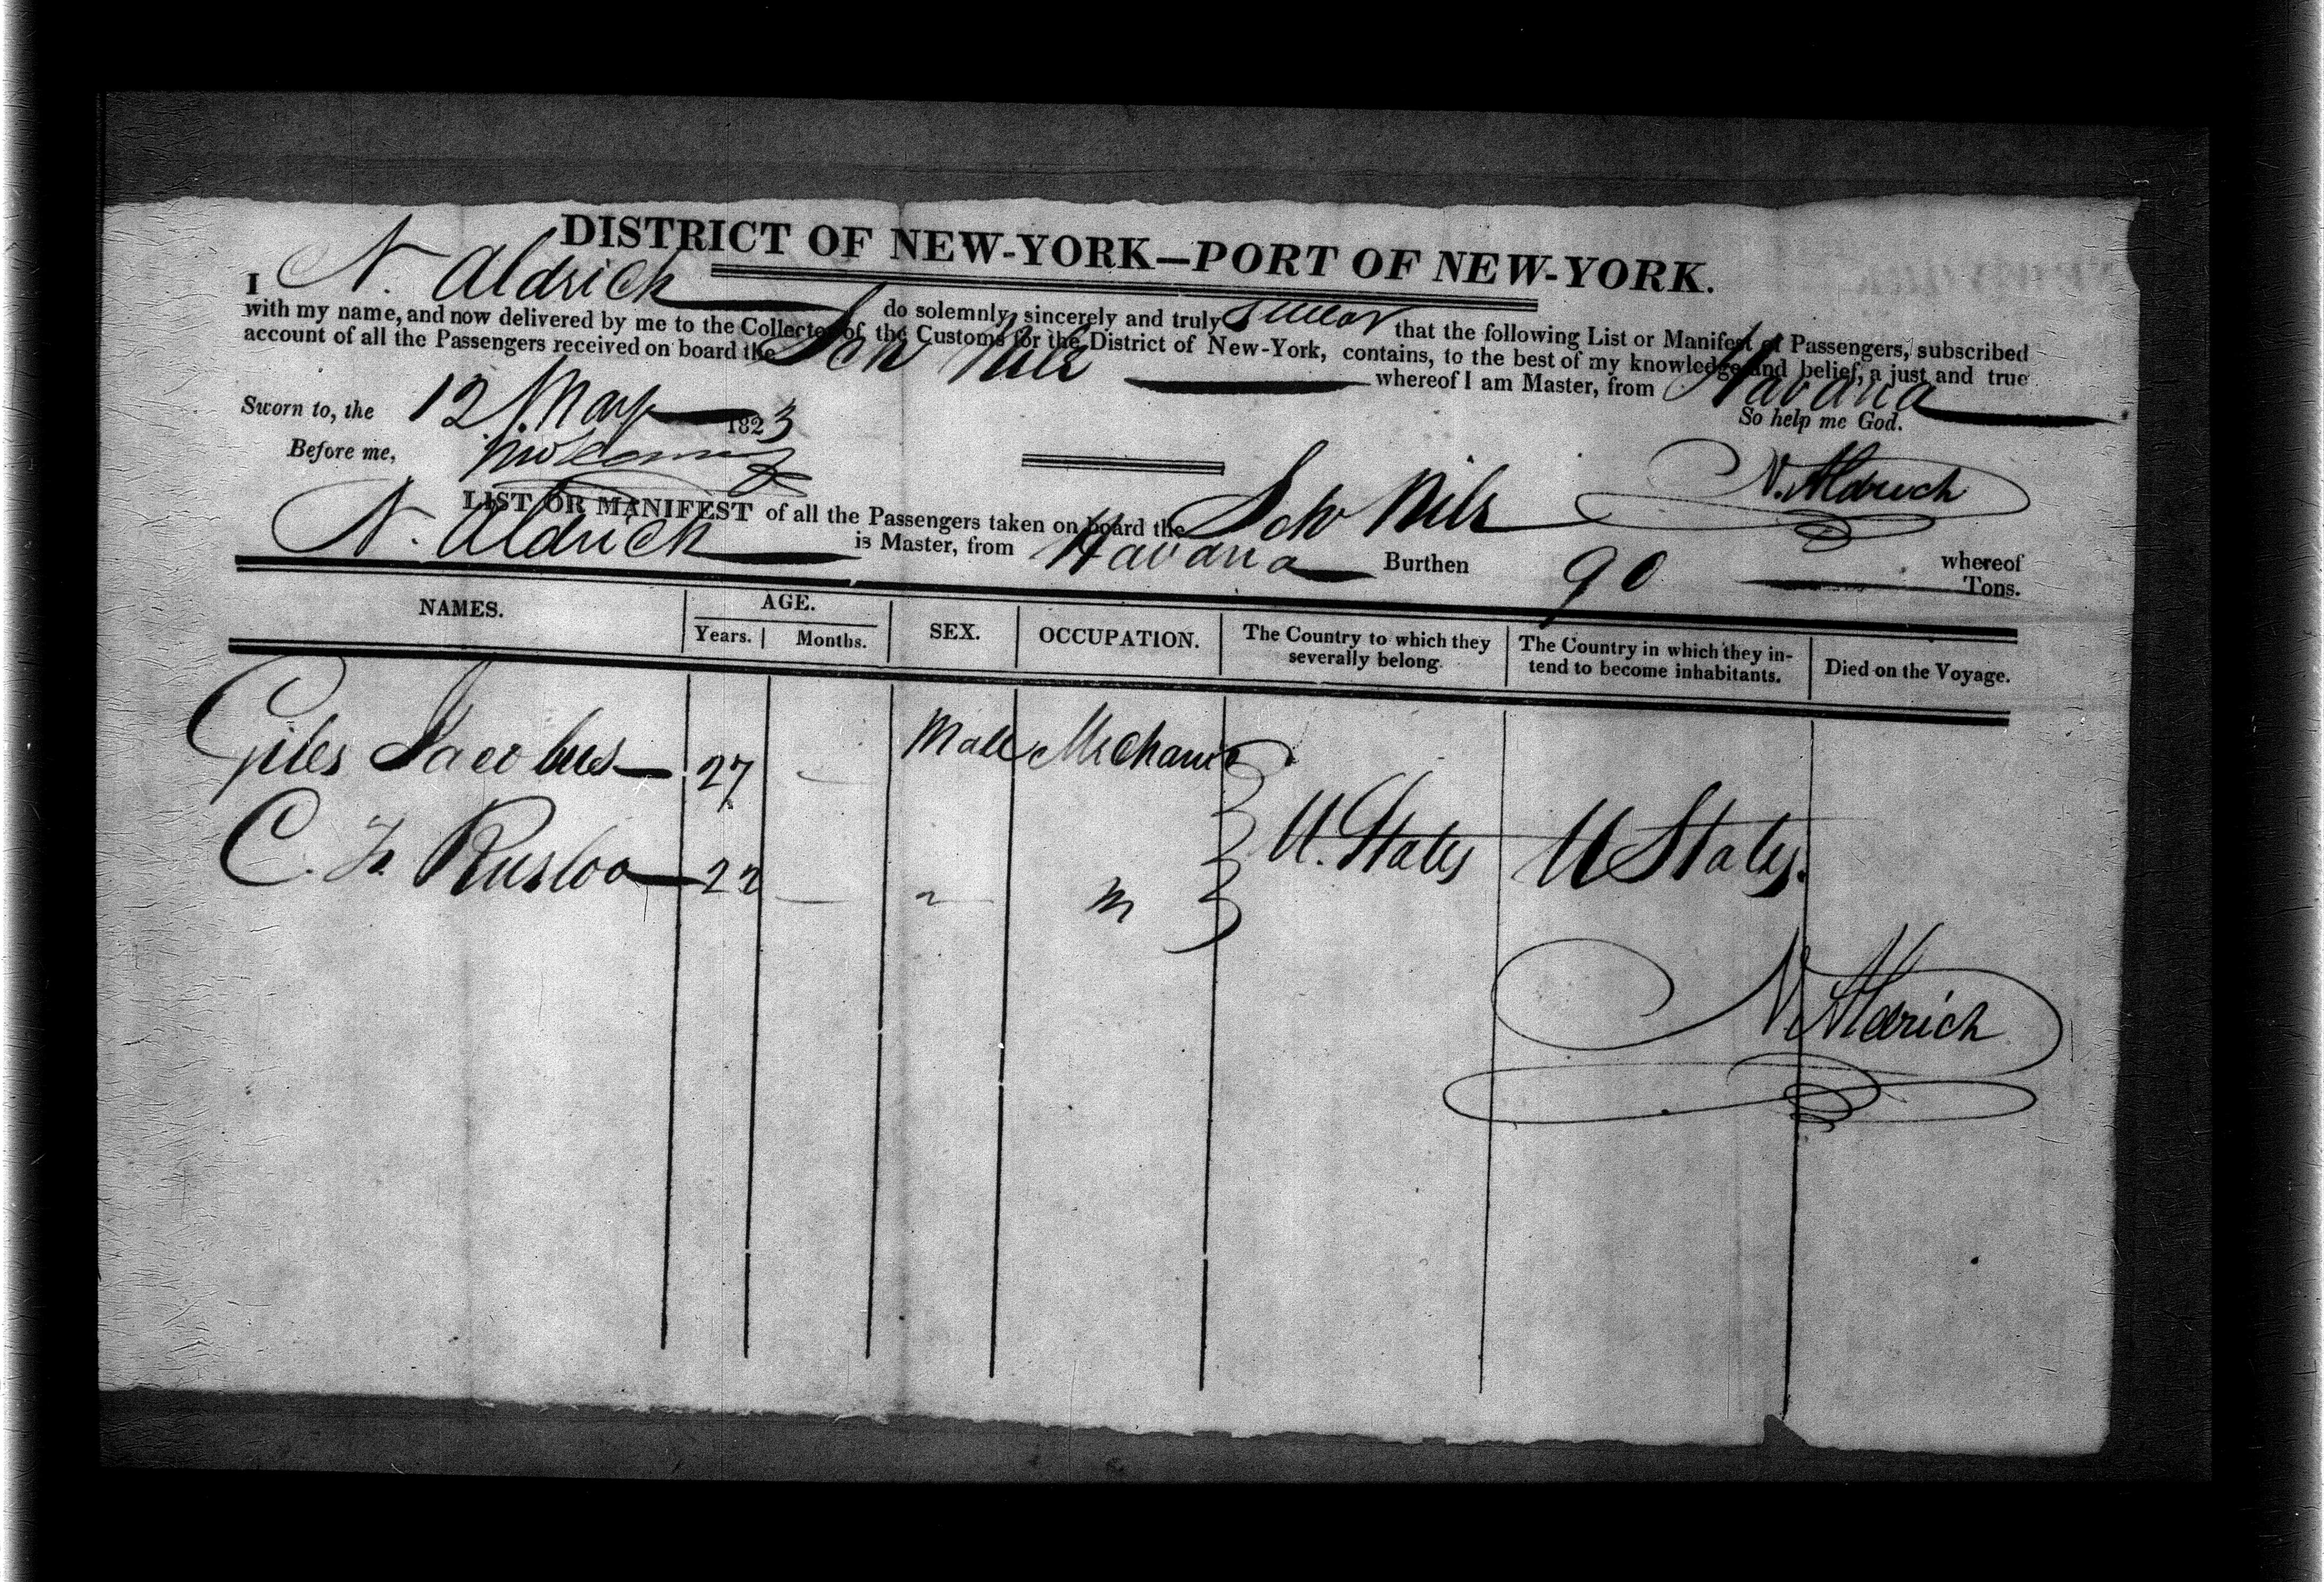 DISTRICT OF NEW-YORK—PORT OF NEW-YORK.
I N. Aldrich do solemnly, sincerely and truly swear that the following List or Manifest of Passengers, subscribed
with my name, and now delivered by me to the Collector of the Customs for the District of New-York, contains, to the best of my knowledge and belief, a just and true
account of all the Passengers received on board the Schr Nile whereof I am Master, from Havana
Sworn to, the 12 May 1823 So help me God.
Before me,
N. Aldrich
LIST OR MANIFEST of all the Passengers taken on board the Schr Nile whereof
N. Aldrich is Master, from Havana Burthen 90 Tons.
NAMES. AGE. Years. Months. SEX. OCCUPATION. The Country to which they severally belong. The Country in which they intend to become inhabitants. Died on the Voyage.
Giles Jacobus 27 — Male Mechanic
C. 22 — " " U. States U States.
N. Aldrich